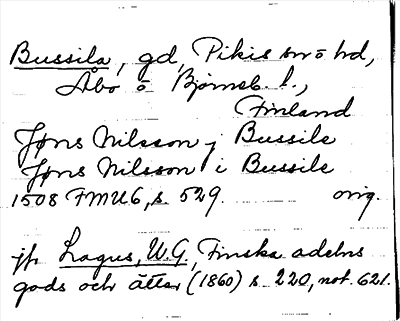 Bussila, gd, Pikis sn o hd,
Åbo o Bjørneb. l.,
Finland
Jøns Nilsson j Bussile
Jøns Nilsson i Bussile
1508 FMU6, s. 529. orig.
jfr Lagus, W.G., Finska adelns
gods och ätter (1860) s. 220, not. 621.